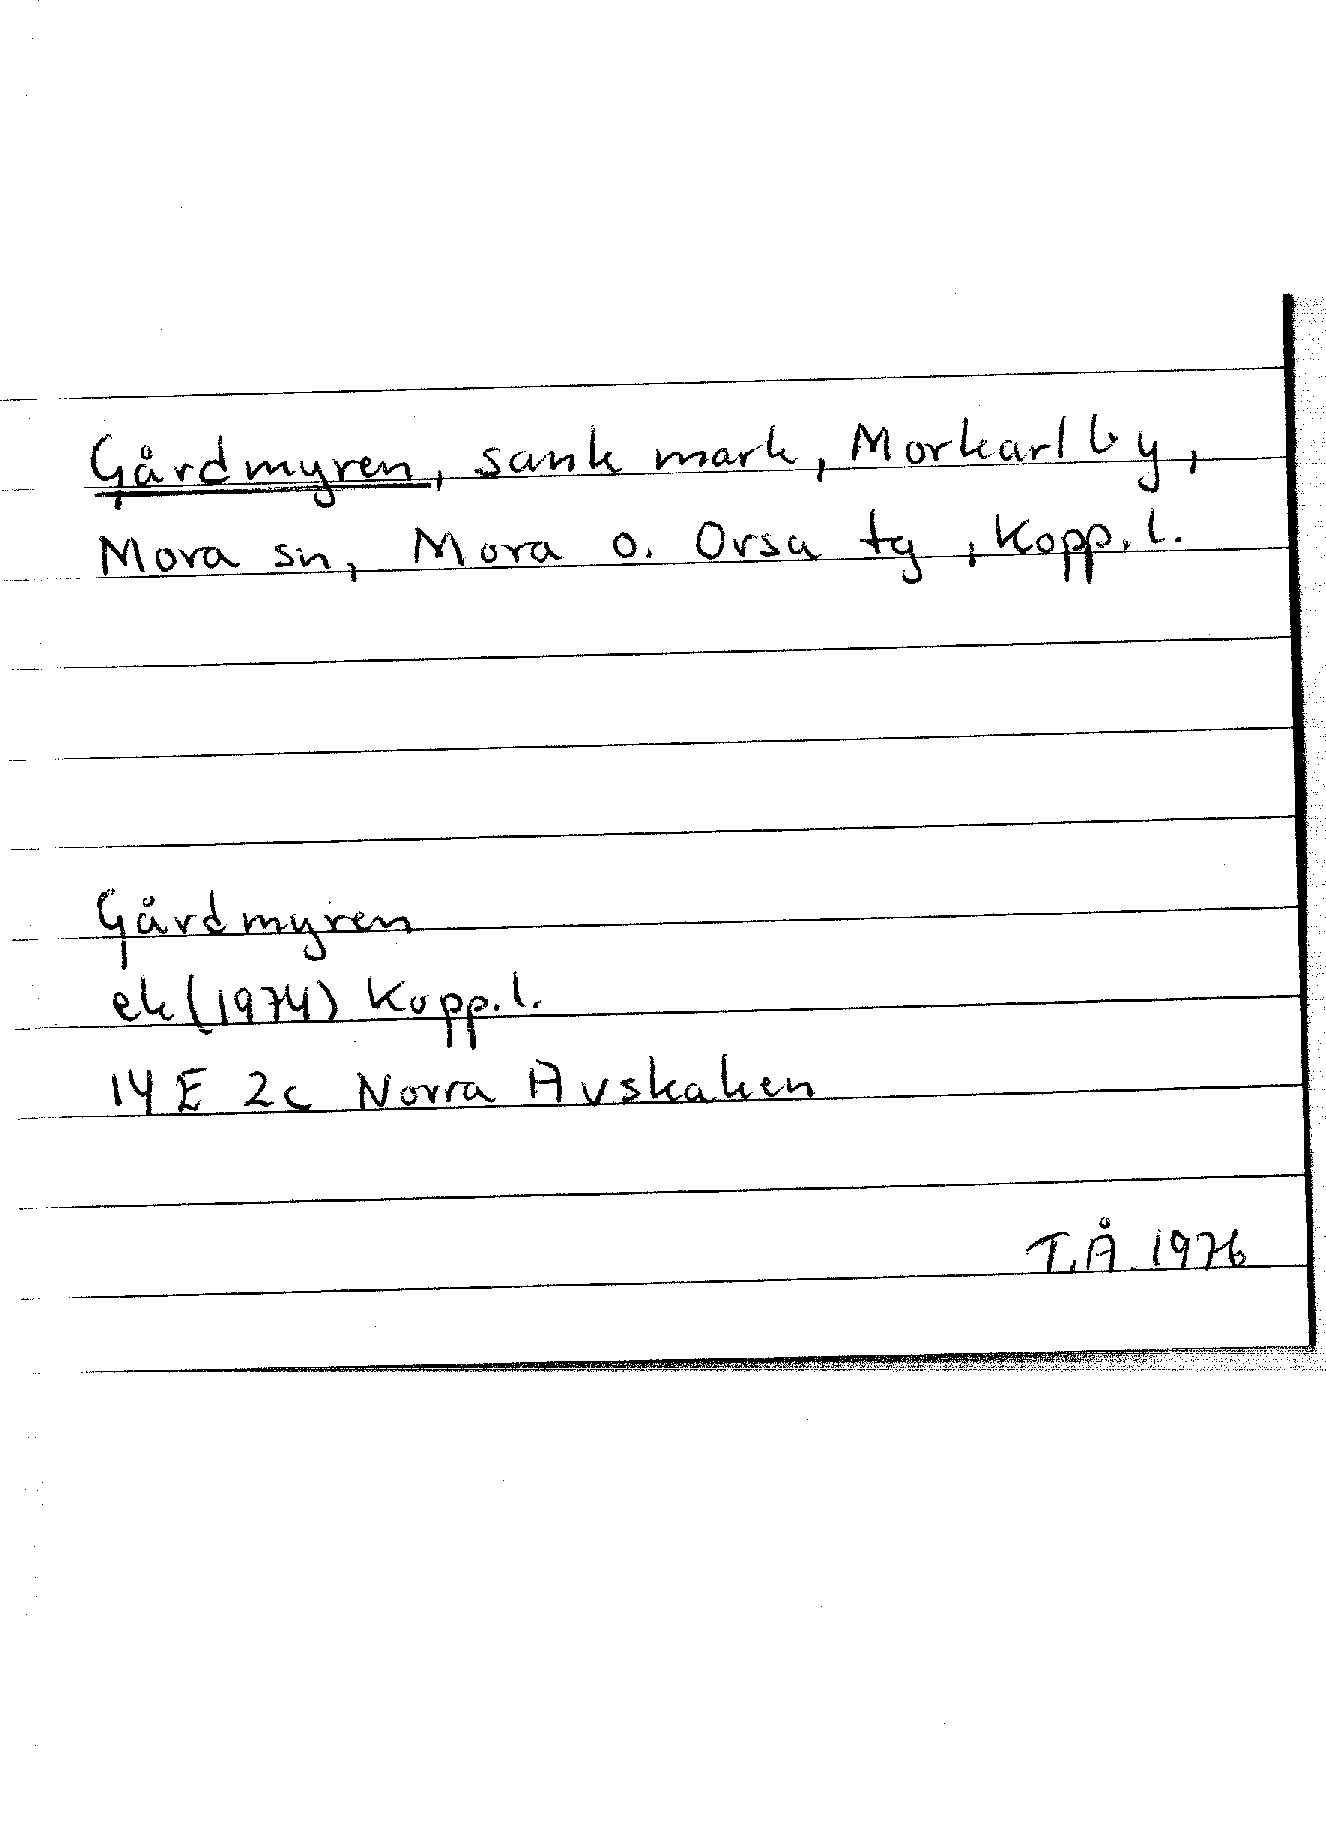 Gårdmyren, sank mark, Morkarlby,
Mora sn, Mora o. Orsa tg, Kopp. l.
Gårdmyren
ek (1974) Kopp. l.
14 E 2c Norra Avskaken
T.Å. 1976